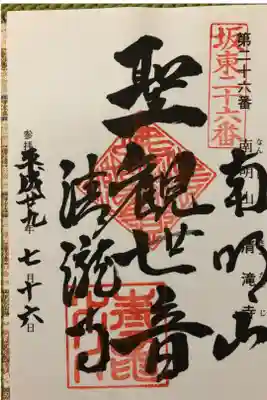 第二十六番
坂東二十六番
南明山 清滝寺
南明山
聖観世音
清瀧寺
参拝 平成廿九年 七月十六日